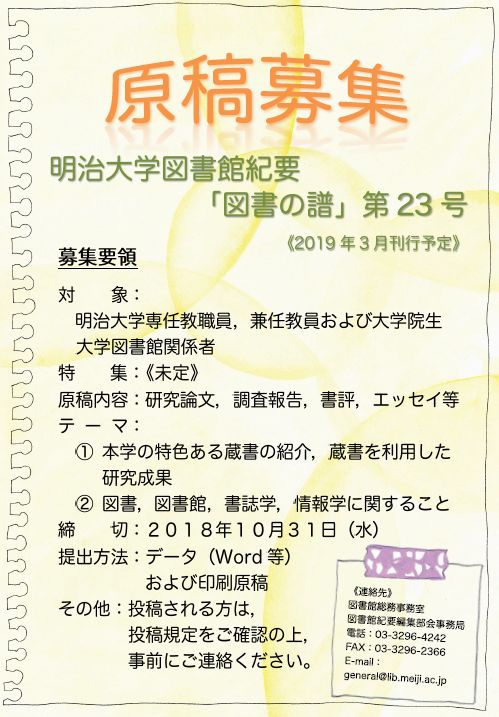 原稿募集
明治大学図書館紀要
「図書の譜」第 23 号
《2019 年 3 月刊行予定》
募集要領
対　　象：
明治大学専任教職員，兼任教員および大学院生
大学図書館関係者
特　　集：《未定》
原稿内容：研究論文，調査報告，書評，エッセイ等
テ ー マ：
① 本学の特色ある蔵書の紹介，蔵書を利用した
研究成果
② 図書，図書館，書誌学，情報学に関すること
締　　切：２０１８年１０月３１日（水）
提出方法：データ（Word 等）
および印刷原稿
その他：投稿される方は，
投稿規定をご確認の上，
事前にご連絡ください。
《連絡先》
図書館総務事務室
図書館紀要編集部会事務局
電話：03-3296-4242
FAX：03-3296-2366
E-mail：
general@lib.meiji.ac.jp